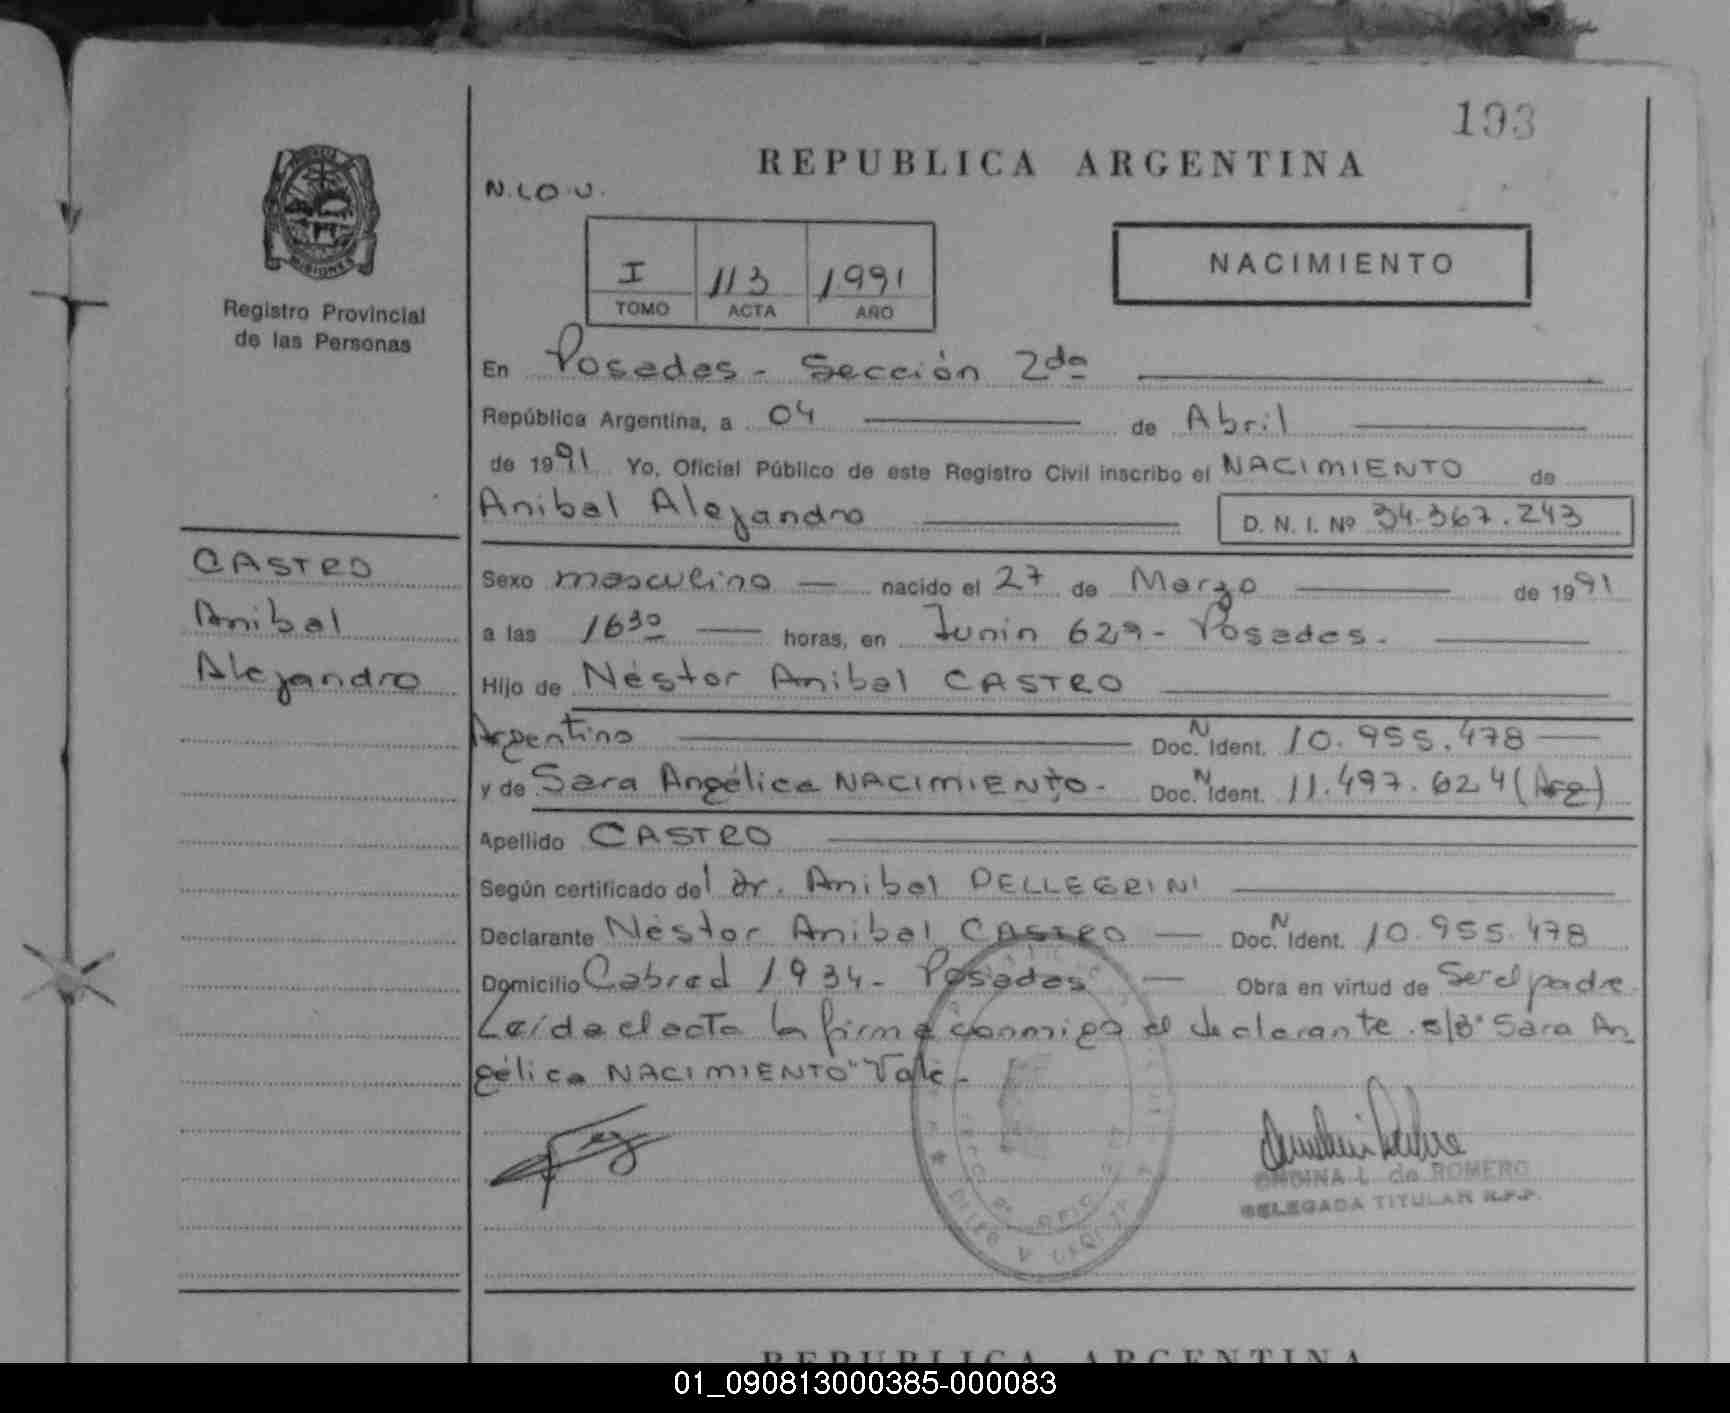 193
REPUBLICA ARGENTINA
N.LO.U.
MISIONES
Registro Provincial
de las Personas
NACIMIENTO
I 113 1991
TOMO ACTA AÑO
En Posadas - Sección 2da
República Argentina, a 04 de Abril
de 1991 Yo, Oficial Público de este Registro Civil inscribo el NACIMIENTO de
Anibal Alejandro D. N. I. Nº 34.367.243
CASTRO
Anibal
Alejandro
Sexo masculino nacido el 27 de Marzo de 1991
a las 1630 horas, en Junin 629 - Posadas.
Hijo de Néstor Anibal CASTRO
Argentino Doc. N Ident. 10.955.478
y de Sara Angélica NACIMIENTO. Doc. N Ident. 11.497.624 (Arg)
Apellido CASTRO
Según certificado del Dr. Anibal PELLEGRINI
Declarante Néstor Anibal CASTRO Doc. N Ident. 10.955.478
Domicilio Cabred 1934 - Posadas Obra en virtud de Ser el padre
Leída el acta la firma conmigo el declarante. s/b "Sara An
gélica NACIMIENTO" Vale.
ONDINA L. de ROMERO
DELEGADA TITULAR R.P.P.
REPUBLICA ARGENTINA
01_090813000385-000083